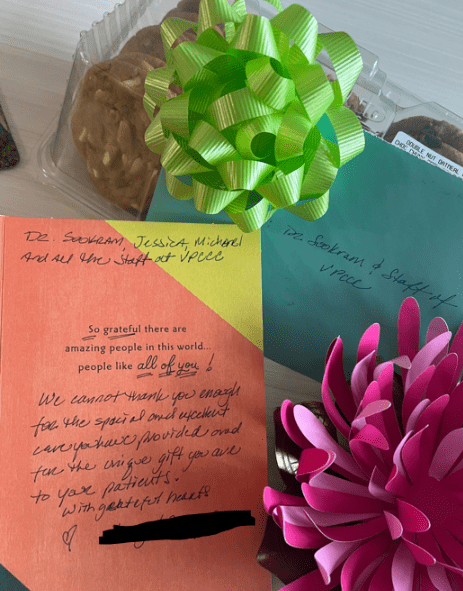 DOUBLE NUT OATMEAL
CHOC CHUNK
Dr. Sookram, Jessica, Michael
And all the Staff at VPCCC
Dr. Sookram & Staff at
VPCCC
So grateful there are
amazing people in this world...
people like all of you!
We cannot thank you enough
for the special and excellent
care you have provided and
for the unique gift you are
to your patients.
With grateful hearts